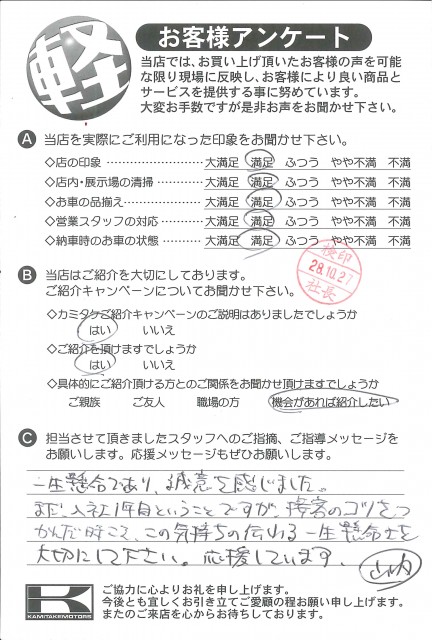 軽
お客様アンケート
当店では、お買い上げ頂いたお客様の声を可能
な限り現場に反映し、お客様により良い商品と
サービスを提供する事に努めています。
大変お手数ですが是非お声をお聞かせ下さい。
A 当店を実際にご利用になった印象をお聞かせ下さい。
◇店の印象 ………………… 大満足 満足 ふつう やや不満 不満
◇店内・展示場の清掃 ………… 大満足 満足 ふつう やや不満 不満
◇お車の品揃え ……………… 大満足 満足 ふつう やや不満 不満
◇営業スタッフの対応 ………… 大満足 満足 ふつう やや不満 不満
◇納車時のお車の状態 ………… 大満足 満足 ふつう やや不満 不満
検印
28.10.27
社長
B 当店はご紹介を大切にしてあります。
ご紹介キャンペーンについてお聞かせ下さい。
◇カミタケご紹介キャンペーンのご説明はありましたでしょうか
はい いいえ
◇ご紹介を頂けますでしょうか
はい いいえ
◇具体的にご紹介頂ける方とのご関係をお聞かせ頂けますでしょうか
ご親族 ご友人 職場の方 機会があれば紹介したい
C 担当させて頂きましたスタッフへのご指摘、ご指導メッセージを
お願いします。応援メッセージもぜひお願いします。
一生懸命であり、誠意を感じました。
まだ入社1年目ということですが、接客のコツをつ
かんだ時こそ、この気持ちの伝わる一生懸命さを
大切にして下さい。応援しています。
K
KAMITAKEMOTORS
ご協力に心よりお礼を申し上げます。
今後とも宜しくお引き立てご愛顧の程お願い申し上げます。
またのご来店を心からお待ちしております。